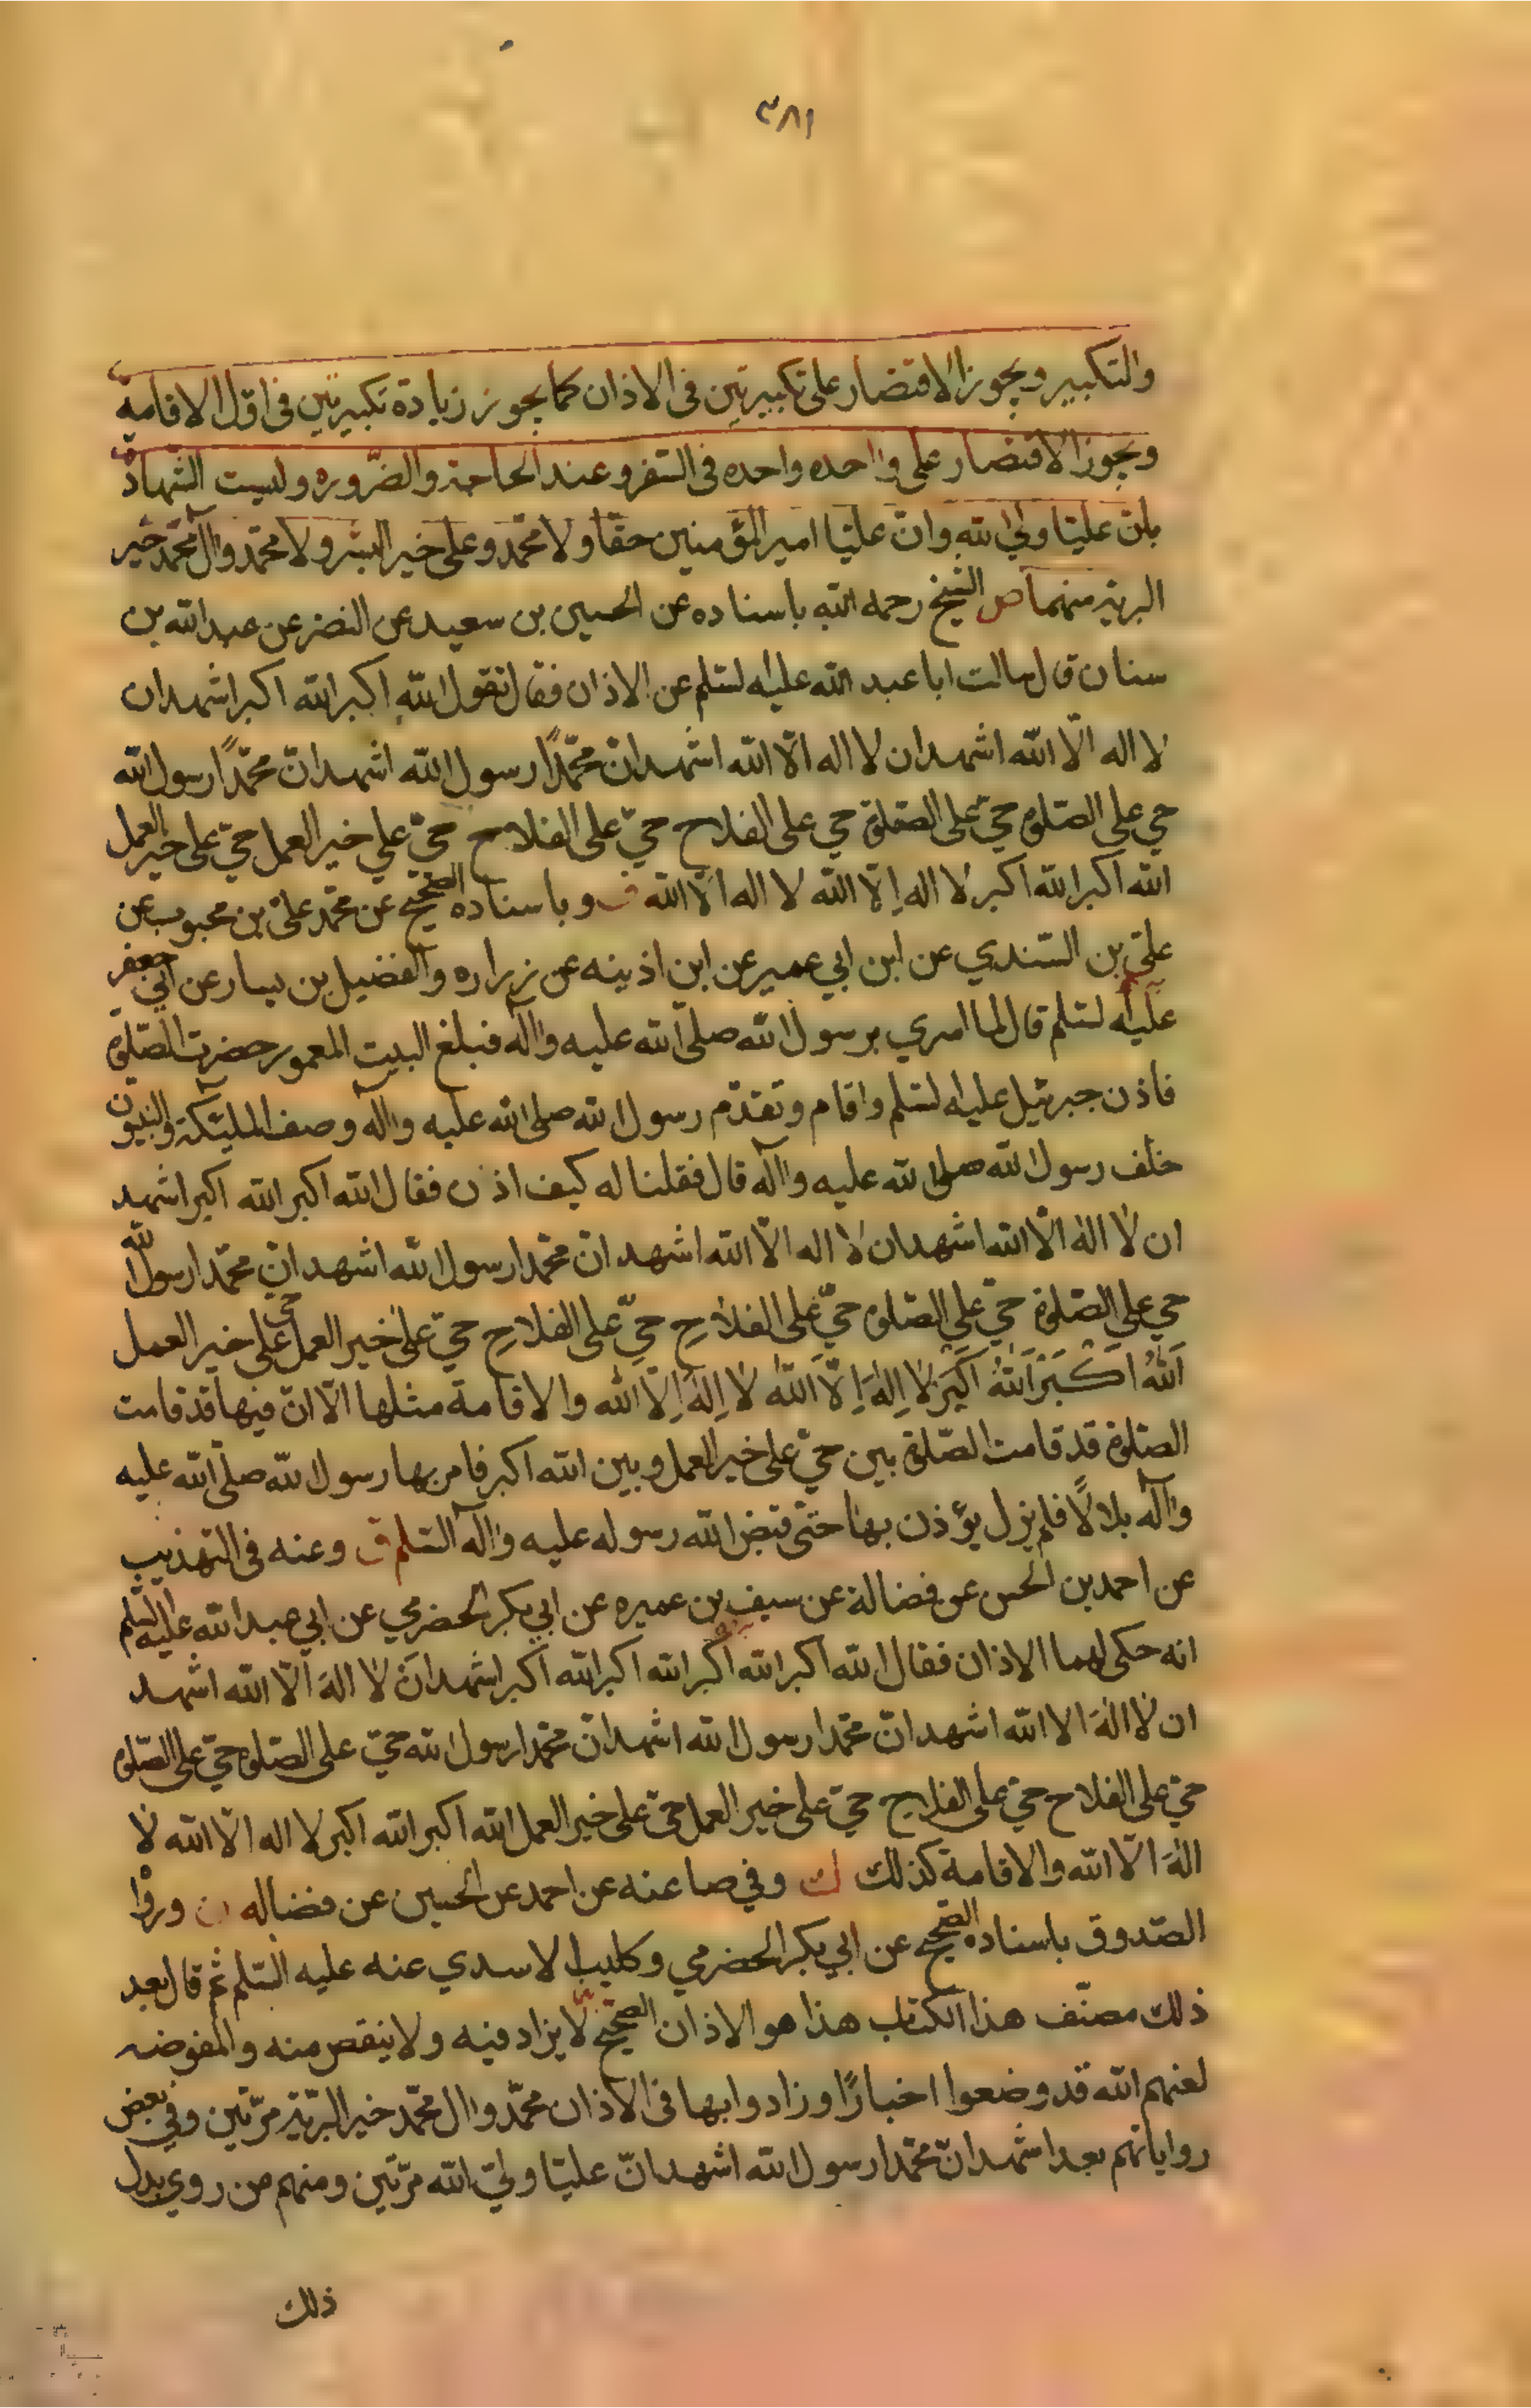 ٣٨١
والتكبير ويجوز الاقتصار على تكبيرتين فى الاذان كما يجوز زيادة تكبيرتين فى اول الاقامة
ويجوز الاقتصار على واحده واحده فى السفر وعند الحاجة والضّروره وليست الشهادة
بانّ عليّا وليّ الله وانّ عليّا امير المؤمنين حقّا ولا محمّد وعلى خير البشر ولا محمّد وآل محمّد خير
البريّة منهما ص الشيخ رحمه الله باسناده عن الحسين بن سعيد عن النضر عن عبد الله بن
سنان قال سالت ابا عبد الله عليه لسّلم عن الاذان فقال تقول الله اكبر الله اكبر اشهد ان
لا اله الّا الله اشهد ان لا اله الّا الله اشهد انّ محمّدًا رسول الله اشهد انّ محمّدًا رسول الله
حي على الصّلوة حيّ على الصّلوة حي على الفلاح حيّ على الفلاح حيّ على خير العمل حيّ على خير العمل
الله اكبر الله اكبر لا اله إلّا الله لا اله الّا الله ف وباسناده الصّحيح عن محمّد على بن محبوب عن
عليّ بن السّندي عن ابن ابي عمير عن ابن اذينه عن زراره والفضيل بن يسار عن ابي جعفر
عليه لسّلم قال لما اسري برسول الله صلّى الله عليه وآله فبلغ البيت المعمور حضرت الصّلوة
فاذن جبرئيل عليه لسّلم واقام وتقدّم رسول الله صلى الله عليه وآله وصف الملئيكة والنبيون
خلف رسول الله صلى الله عليه وآله قال فقلنا له كيف اذن فقال الله اكبر الله اكبر اشهد
ان لا اله الّا الله اشهد ان لا اله الّا الله اشهد انّ محمّدا رسول الله اشهد انّ محمّدا رسول الله
حي على الصّلوة حيّ على الصّلوة حيّ على الفلاح حيّ على الفلاح حيّ على خير العمل حي على خير العمل
اَللّٰهُ اَكْبَرُ اَللّٰهُ اَكبَر لا اِلٰهَ اِلّا اللّٰه لا اِلٰهَ اِلّا الله والاقامة مثلها الّا انّ فيها قد قامت
الصّلوة قد قامت الصّلوة بين حيّ على خير العمل وبين الله اكبر فامر بها رسول الله صلّى الله عليه
وآله بلالًا فلم يزل يؤذن بها حتّى قبض الله رسوله عليه وآله السّلم ق وعنه فى التهذيب
عن احمد بن الحسن عن فضالة عن سيف بن عميره عن ابي بكر الحضرمي عن ابي عبد الله عليه السّلم
انه حكى لهما الاذان فقال الله اكبر الله اكبر الله اكبر الله اكبر اشهد ان لا اله الّا الله اشهد
ان لا اله الا الله اشهد انّ محمّدا رسول الله اشهد انّ محمّدا رسول الله حيّ على الصّلوة حيّ على الصّلوة
حيّ على الفلاح حيّ على الفلاح حيّ على خير العمل حيّ على خير العمل الله اكبر الله اكبر لا اله الّا الله لا
اله الّا الله والاقامة كذلك وفي صا عنه عن احمد عن الحسين عن فضاله ورواه
الصّدوق باسناده الصّحيح عن ابي بكر الحضرمي وكليب الاسدي عنه عليه السّلم ثم قال بعد
ذلك مصنّف هذا الكتاب هذا هو الاذان الصّحيح لا يزاد فيه ولا ينقص منه والمفوضه
لعنهم الله قد وضعوا اخبارًا وزادوا بها فى الاذان محمّد وال محمّد خير البّريّة مرّتين وفي بعض
رواياتهم بعد اشهد انّ محمّدا رسول الله اشهد انّ عليّا وليّ الله مرّتين ومنهم من روي بدل
ذلك